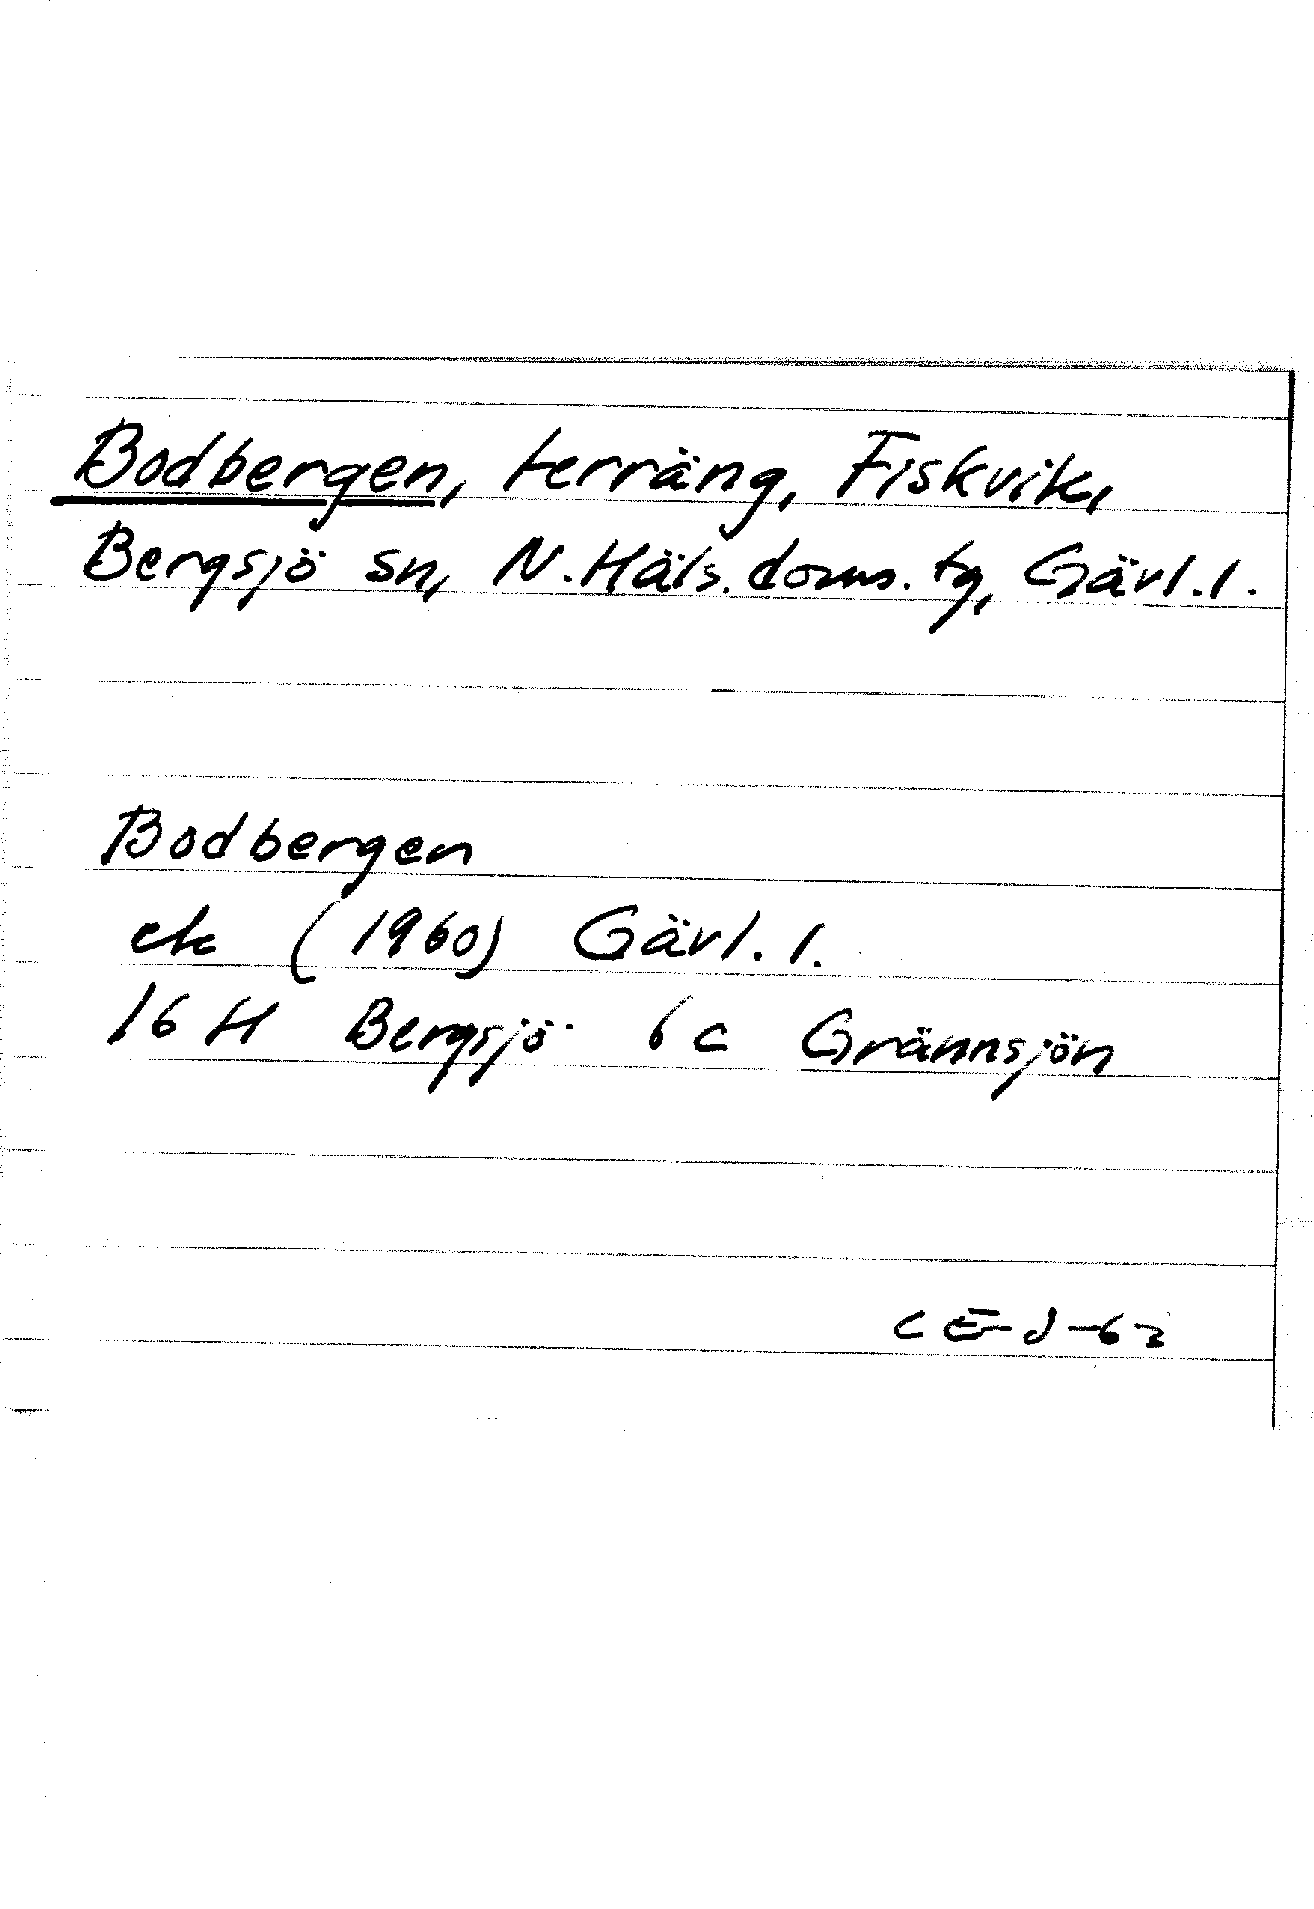 Bodbergen, terräng, Fiskvik,
Bergsjö sn, N. Häls. doms. tg, Gävl. l.
Bodbergen
ek (1960) Gävl. l.
16 H Bergsjö 6 c Grännsjön
CEJ-63